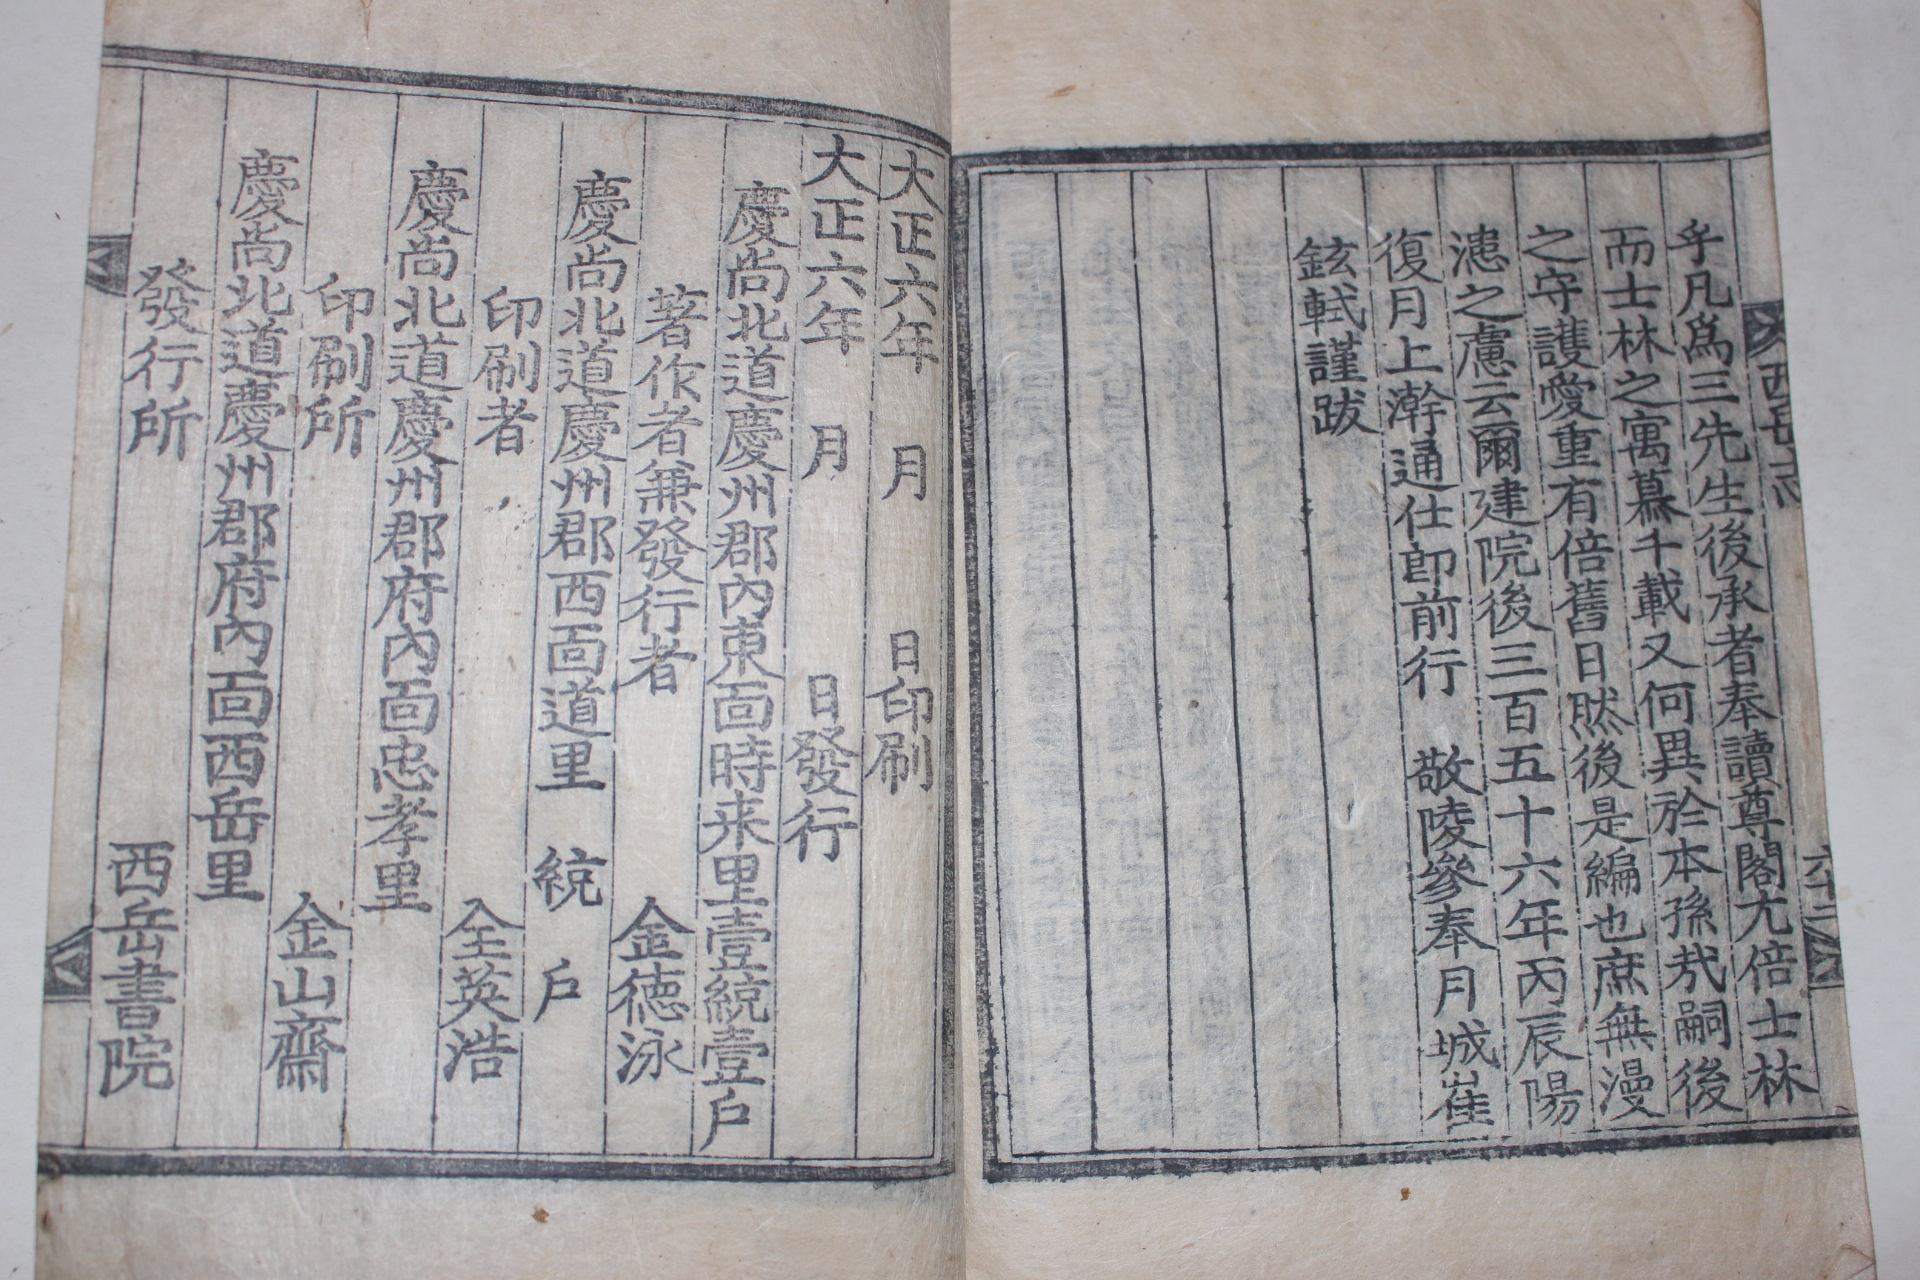 西岳志
六十二
乎凡爲三先生後承者奉讀尊閣尤倍士林
而士林之寓慕千載又何異於本孫㦲嗣後
之守護愛重有倍舊日然後是編也庶無漫
漶之慮云爾建院後三百五十六年丙辰陽
復月上澣通仕郎前行 敬陵參奉月城崔
鉉軾謹跋
大正六年 月 日印刷
大正六年 月 日發行
慶尚北道慶州郡內東面時来里壹統壹戶
著作者兼發行者 金德泳
慶尚北道慶州郡西面道里 統 戶
印刷者 全英浩
慶尚北道慶州郡府內面忠孝里
印刷所 金山齋
慶尚北道慶州郡府內面西岳里
發行所 西岳書院